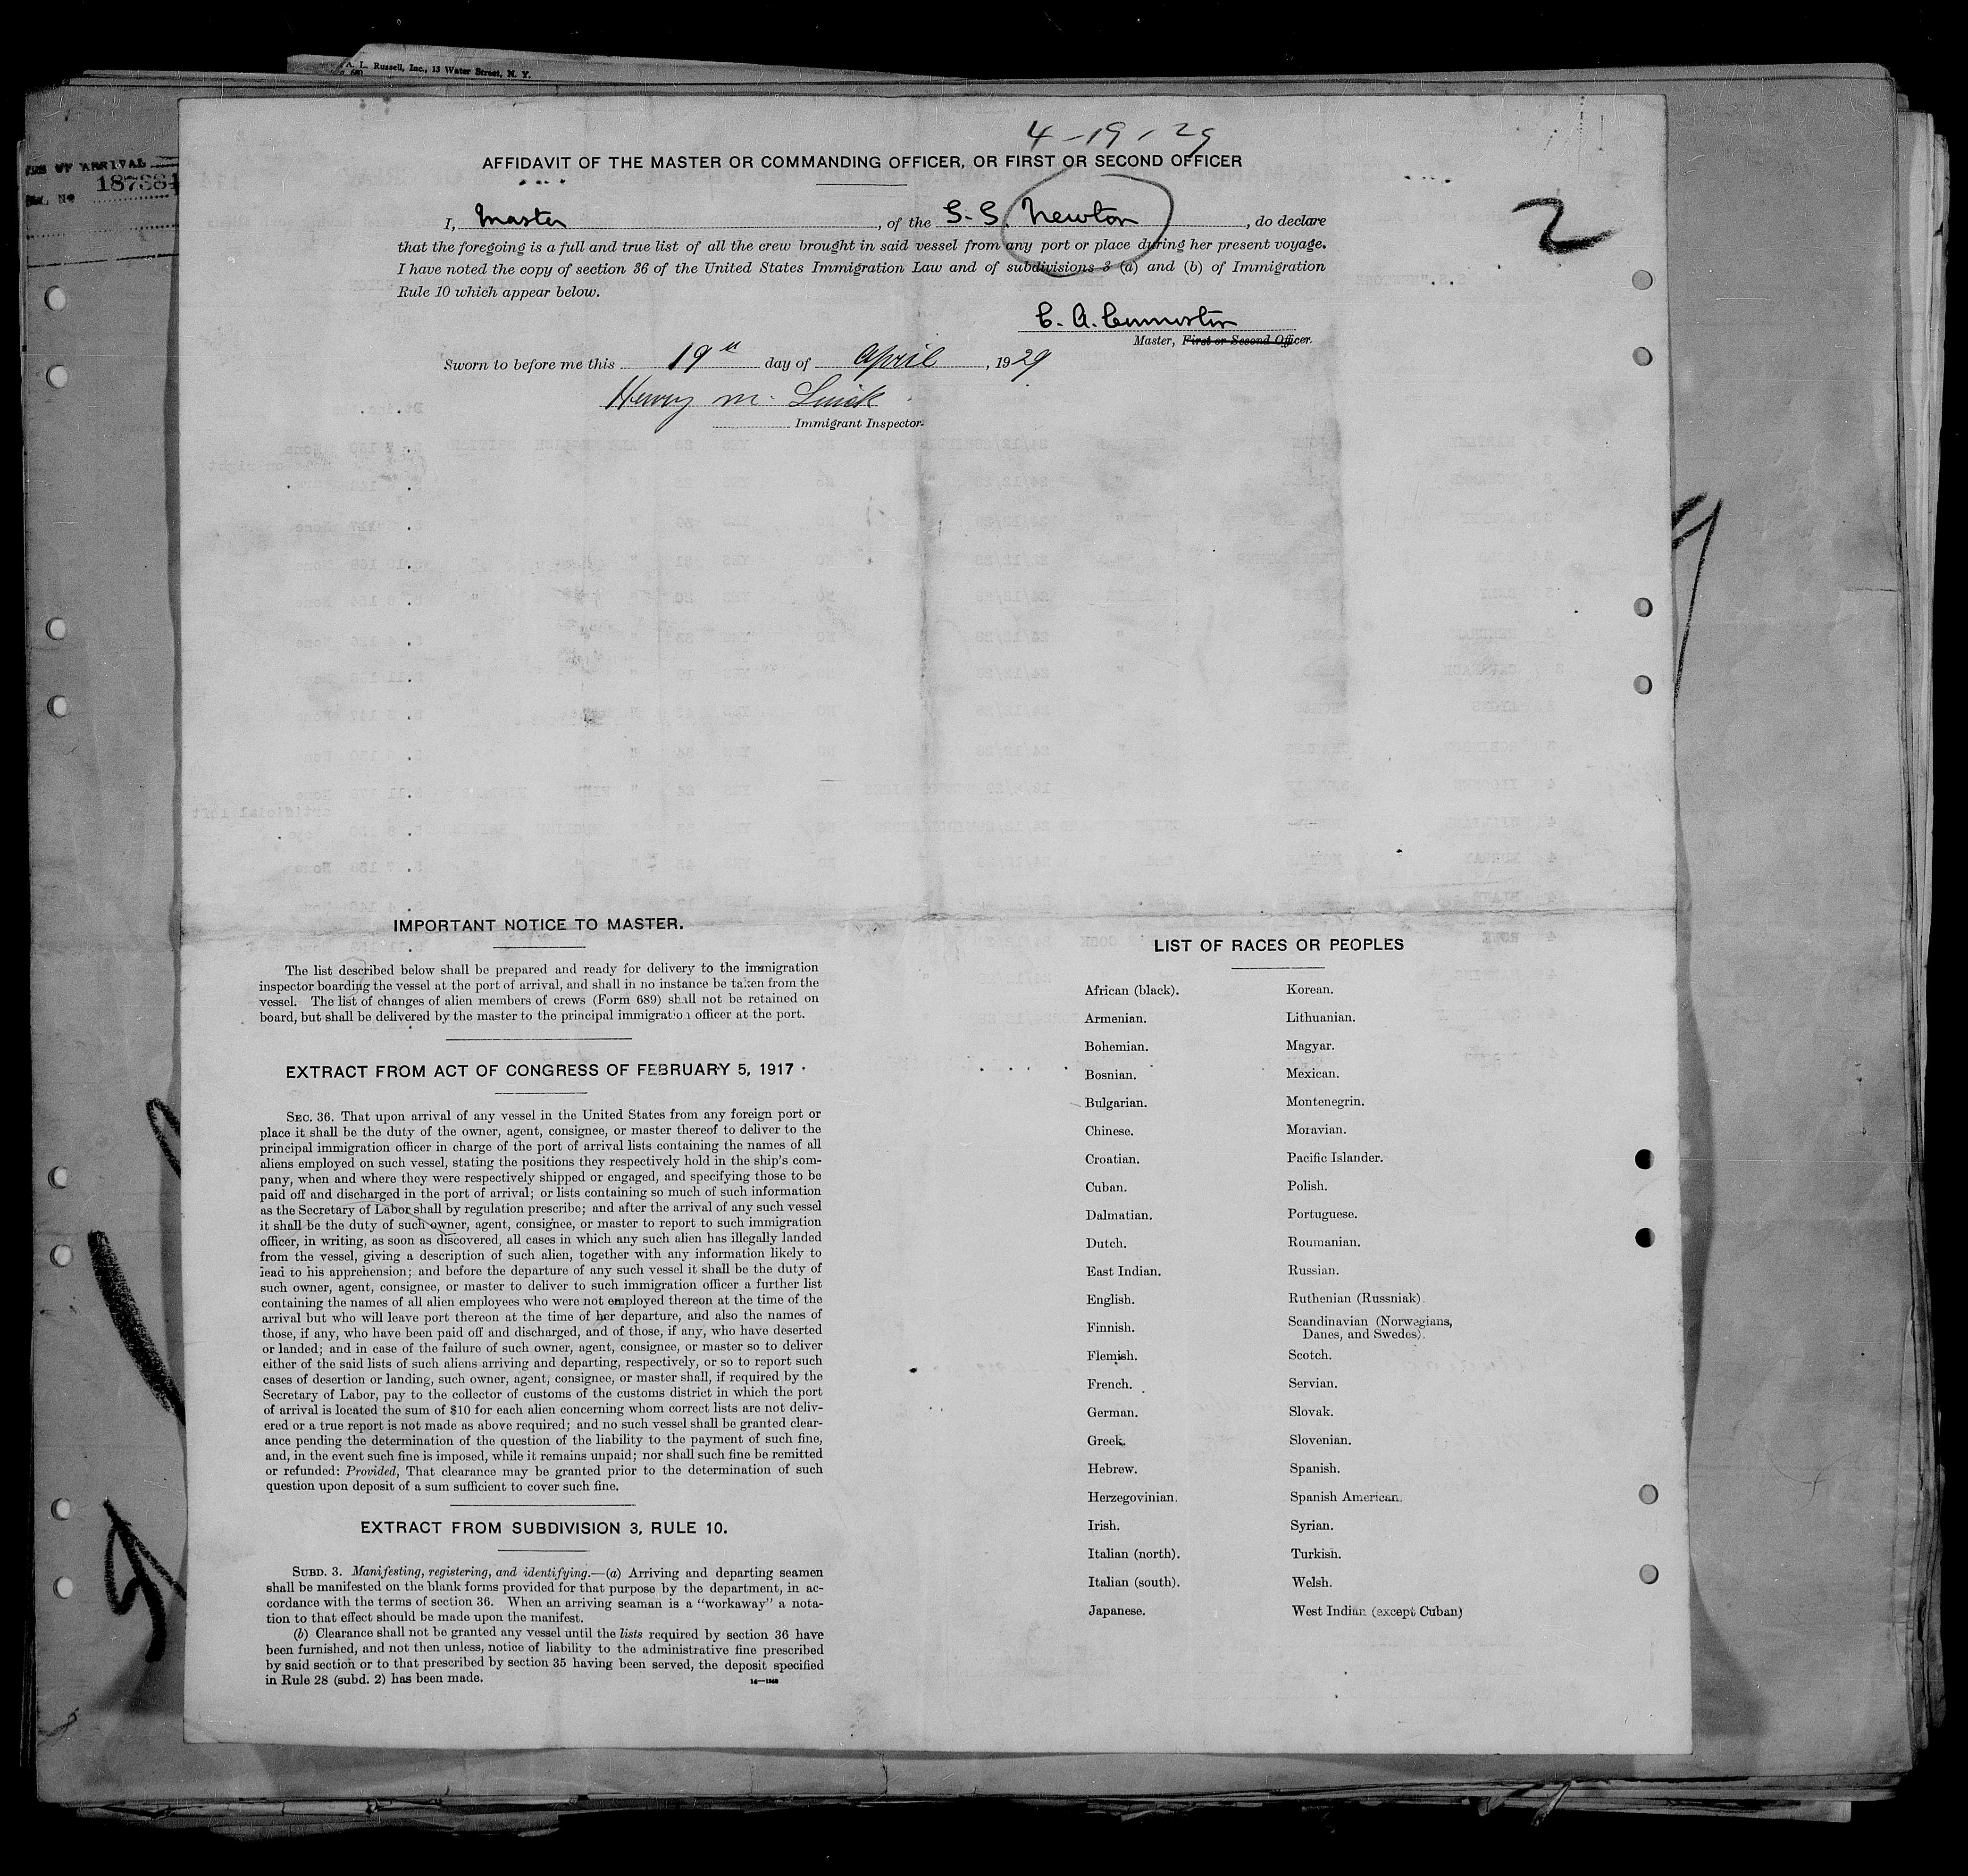 A. L. Russell, Inc., 13 Water Street, N. Y.
OF ARRIVAL
187384
4-19-29
AFFIDAVIT OF THE MASTER OR COMMANDING OFFICER, OR FIRST OR SECOND OFFICER
2
I, Master, of the S.S. Newton, do declare
that the foregoing is a full and true list of all the crew brought in said vessel from any port or place during her present voyage.
I have noted the copy of section 36 of the United States Immigration Law and of subdivisions 3 (a) and (b) of Immigration
Rule 10 which appear below.
Master, First or Second Officer.
Sworn to before me this 19th day of April, 1929
Henry M.
Immigrant Inspector.
IMPORTANT NOTICE TO MASTER.
The list described below shall be prepared and ready for delivery to the immigration
inspector boarding the vessel at the port of arrival, and shall in no instance be taken from the
vessel. The list of changes of alien members of crews (Form 689) shall not be retained on
board, but shall be delivered by the master to the principal immigration officer at the port.
EXTRACT FROM ACT OF CONGRESS OF FEBRUARY 5, 1917
SEC. 36. That upon arrival of any vessel in the United States from any foreign port or
place it shall be the duty of the owner, agent, consignee, or master thereof to deliver to the
principal immigration officer in charge of the port of arrival lists containing the names of all
aliens employed on such vessel, stating the positions they respectively hold in the ship's com-
pany, when and where they were respectively shipped or engaged, and specifying those to be
paid off and discharged in the port of arrival; or lists containing so much of such information
as the Secretary of Labor shall by regulation prescribe; and after the arrival of any such vessel
it shall be the duty of such owner, agent, consignee, or master to report to such immigration
officer, in writing, as soon as discovered, all cases in which any such alien has illegally landed
from the vessel, giving a description of such alien, together with any information likely to
lead to his apprehension; and before the departure of any such vessel it shall be the duty of
such owner, agent, consignee, or master to deliver to such immigration officer a further list
containing the names of all alien employees who were not employed thereon at the time of the
arrival but who will leave port thereon at the time of her departure, and also the names of
those, if any, who have been paid off and discharged, and of those, if any, who have deserted
or landed; and in case of the failure of such owner, agent, consignee, or master so to deliver
either of the said lists of such aliens arriving and departing, respectively, or so to report such
cases of desertion or landing, such owner, agent, consignee, or master shall, if required by the
Secretary of Labor, pay to the collector of customs of the customs district in which the port
of arrival is located the sum of $10 for each alien concerning whom correct lists are not deliv-
ered or a true report is not made as above required; and no such vessel shall be granted clear-
ance pending the determination of the question of the liability to the payment of such fine,
and, in the event such fine is imposed, while it remains unpaid; nor shall such fine be remitted
or refunded: Provided, That clearance may be granted prior to the determination of such
question upon deposit of a sum sufficient to cover such fine.
EXTRACT FROM SUBDIVISION 3, RULE 10.
SUBD. 3. Manifesting, registering, and identifying.—(a) Arriving and departing seamen
shall be manifested on the blank forms provided for that purpose by the department, in ac-
cordance with the terms of section 36. When an arriving seaman is a "workaway" a nota-
tion to that effect should be made upon the manifest.
(b) Clearance shall not be granted any vessel until the lists required by section 36 have
been furnished, and not then unless, notice of liability to the administrative fine prescribed
by said section or to that prescribed by section 35 having been served, the deposit specified
in Rule 28 (subd. 2) has been made.
LIST OF RACES OR PEOPLES
African (black).
Armenian.
Bohemian.
Bosnian.
Bulgarian.
Chinese.
Croatian.
Cuban.
Dalmatian.
Dutch.
East Indian.
English.
Finnish.
Flemish.
French.
German.
Greek.
Hebrew.
Herzegovinian.
Irish.
Italian (north).
Italian (south).
Japanese.
Korean.
Lithuanian.
Magyar.
Mexican.
Montenegrin.
Moravian.
Pacific Islander.
Polish.
Portuguese.
Roumanian.
Russian.
Ruthenian (Russniak).
Scandinavian (Norwegians,
Danes, and Swedes).
Scotch.
Servian.
Slovak.
Slovenian.
Spanish.
Spanish American.
Syrian.
Turkish.
Welsh.
West Indian (except Cuban)